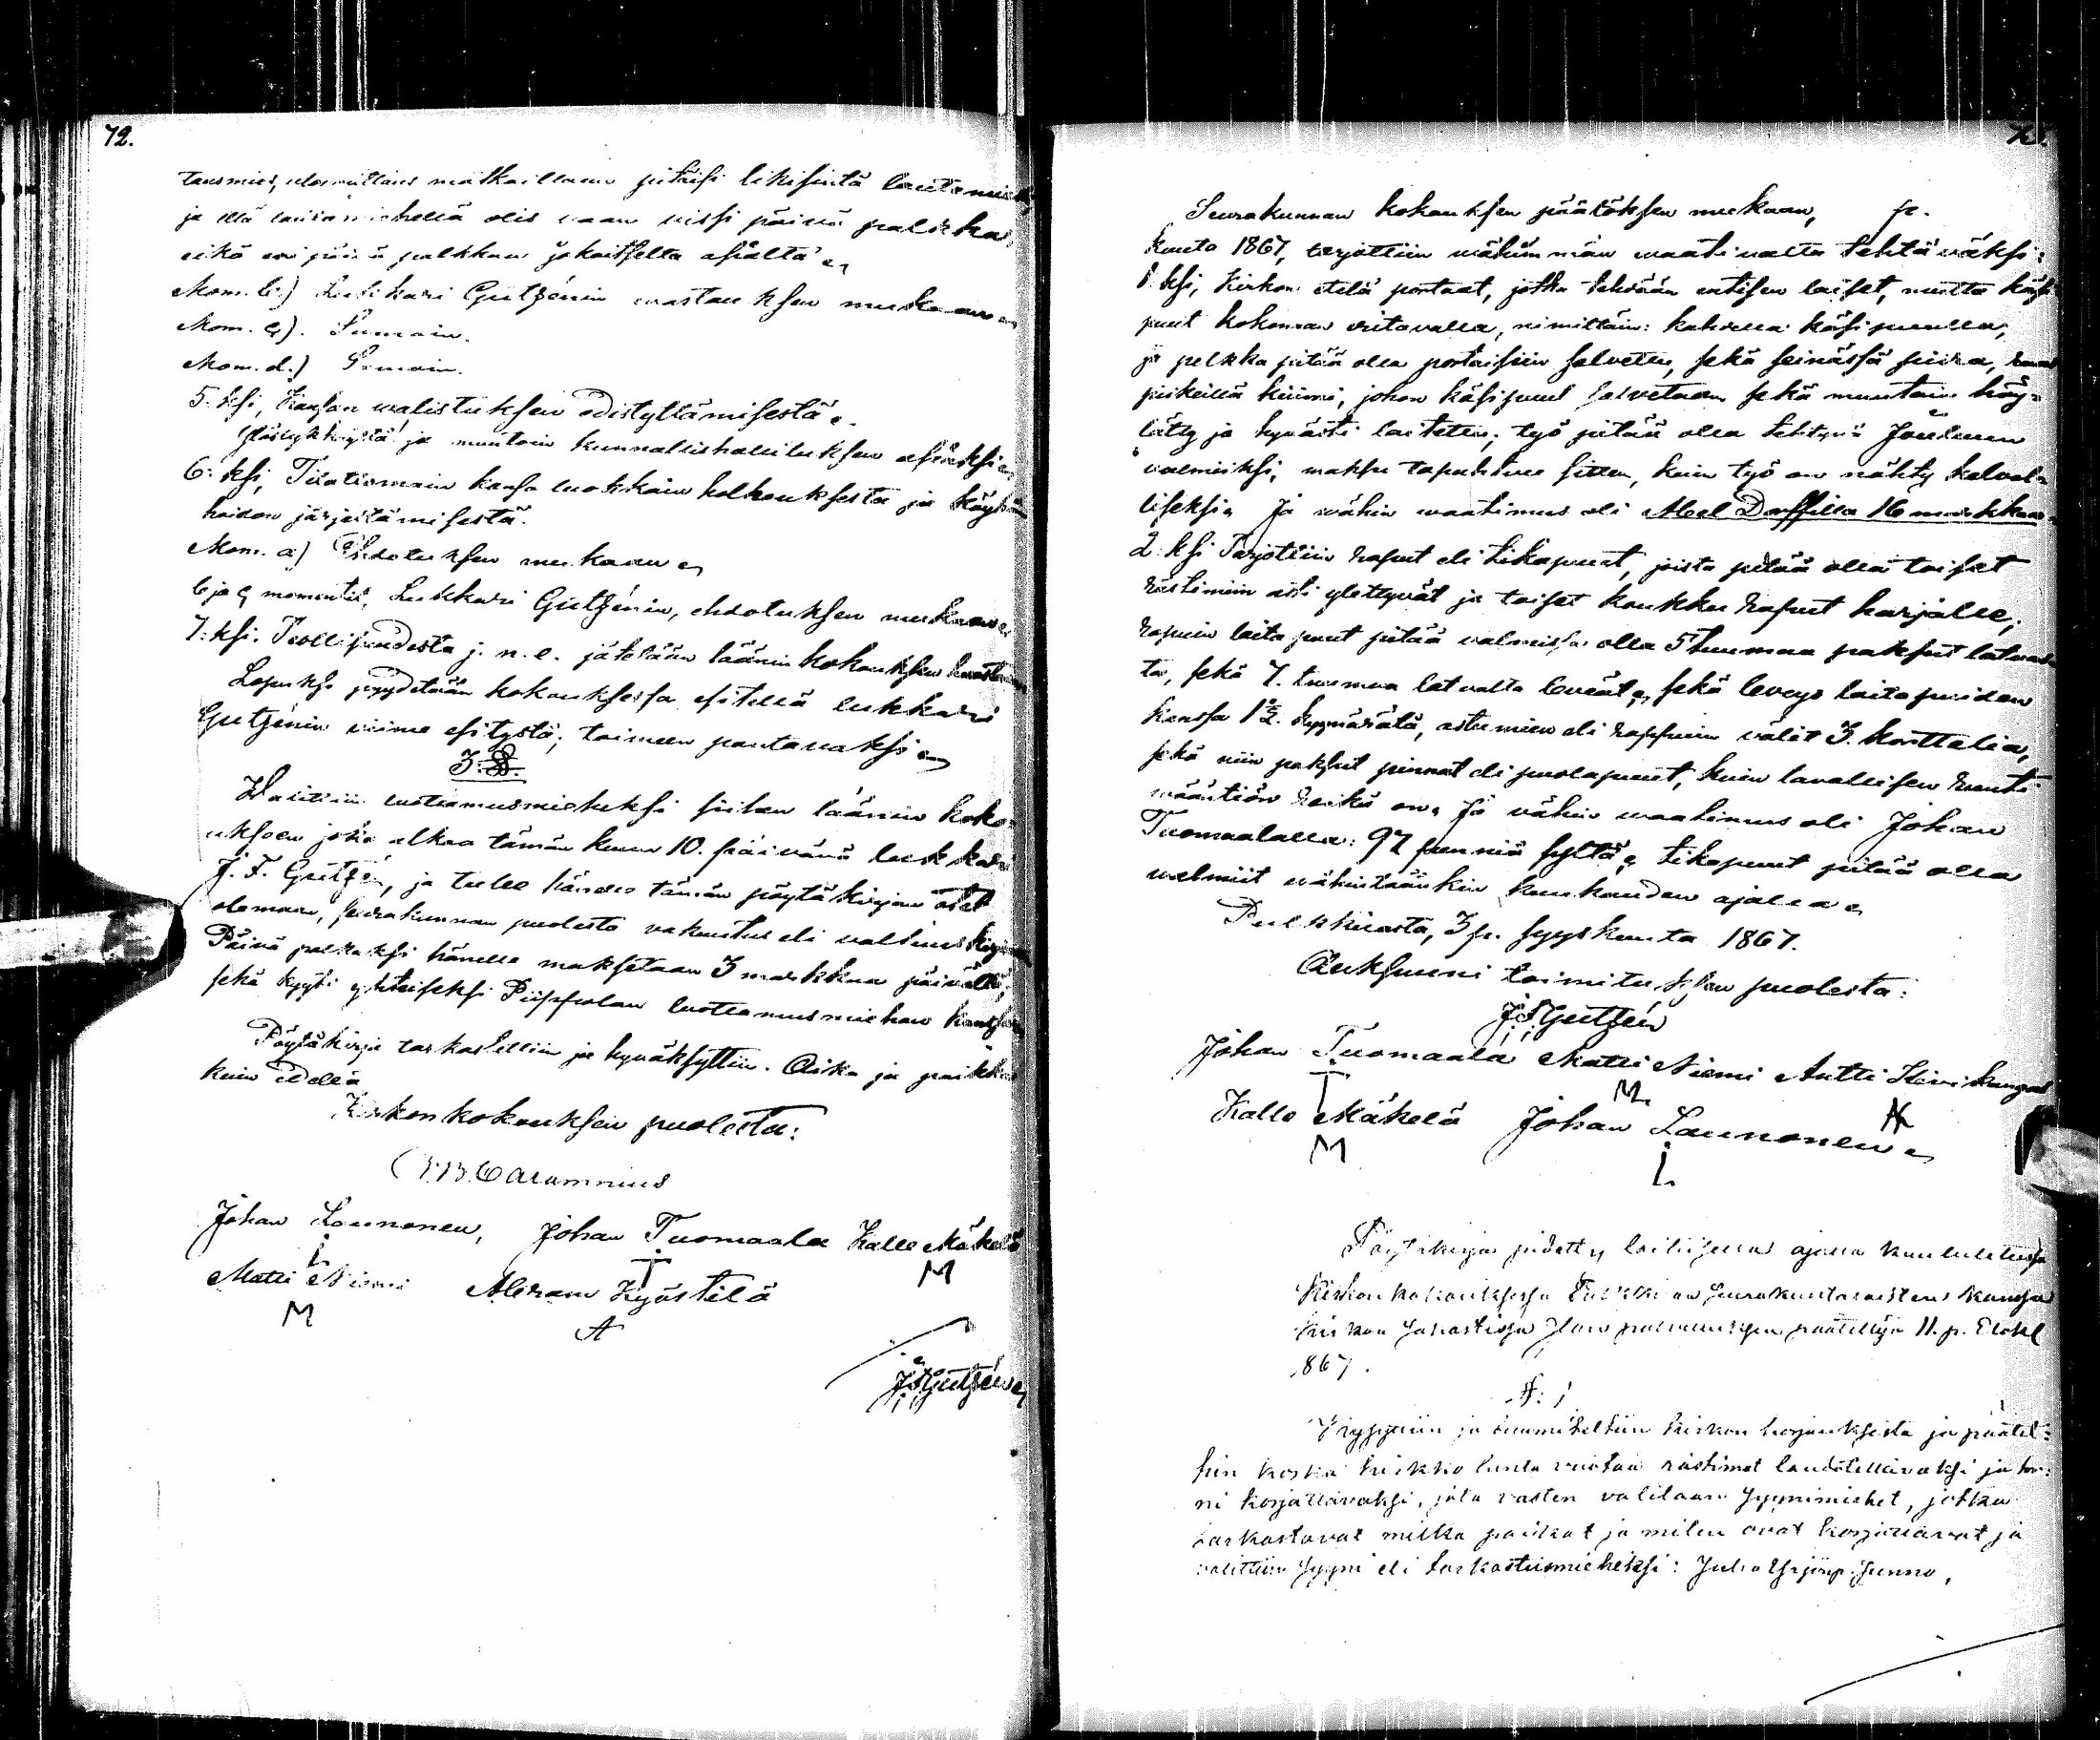 72.
tausmies, ulosmittaus matkaillaan pitäisi likisintä lautamies
ja että lautamiehellä olis vaan vissi päivä palkka,
eikä eri päivä palkkaa jokaitselta asialta.
Mom. b.) Lukkari Gutzénin vastauksen mukaan.
Mom. c). Samoin.
Mom. d.) Samoin.
5:ksi, Kansan walistuksen edistyttämisestä.
ja muutoin kunnallishallituksen
6:ksi, Tilattomain kansa luokkain holhouksesta ja
hoidon järjestämisestä.
Mom. a) Ehdotuksen mukaan.
b ja c momentit, Lukkari Gutzénin, ehdotuksen mukaan.
7:ksi. j. n. e. jätetään läänin kokouksen
Lopuksi pyydetään kokouksessa esitellä lukkari
Gutzénin viime esitystä; toimeen pantavaksi.
3:§.
Walittiin luottamusmieheksi siihen läänin koko-
ukseen joka alkaa tämän kuun 10. päivänä lukkari
J. F. Gutzén, ja tulee hänelle tämän pöytäkirjan
olemaan, seurakunnan puolesta vakuutus eli valtuus
Päivä palkaksi hänelle maksetaan 3 markkaa päivältä;
sekä kyyti yhteiseksi Piippolan luottamusmiehen kanssa
Pöytäkirja tarkastettiin ja hyväksyttiin. Aika ja paikka
kuin edellä
Kirkonkokouksen puolesta:
Johan Launonen, Johan Tuomaala Kalle Mäkelä
L. T M
Matti Niemi Abram Kyöstilä
M A
J F Gutzén
Seurakunnan kokouksen päätöksen mukaan, p.
kuuta 1867, tarjottiin wähimmän waativalta tehtäväksi:
1:ksi, Kirkon etelä portaat, jotka tehdään entisen laiset, mutta käsi
puut kokonaan uutavalla, nimittäin: kahdella käsi puulla,
ja pelkka pitää olla portaisiin salvettu, sekä seinässä
kiinni, johon käsipuut salvetaan sekä muutoin höy-
lätty ja hyvästi laitettu; työ pitää olla tehtynä Jouluun
valmiiksi; maksu tapahtuu sitten, kuin työ on nähty kelval-
liseksi. Ja wähin waatimus oli 16 markkaa.
2:ksi Tarjottiin raput eli tikapuut, joista pitää olla toiset
rästimiin asti ylettyvät ja toiset koukku raput harjalle;
rapuin laita puut pitää valmiissa olla 5 tuumaa paksut latvas-
ta, sekä 7. tuumaa latvalta leveät, sekä leveys laitapuiden
kanssa 1½. kyynärätä, astumien eli rappuin välit 3. korttelia,
sekä niin paksut pinnat eli puolapuut, kuin tavallisen
reikä on. Ja wähin waatimus oli Johan
Tuomaalalla: 97 penniä syltä. tikapuut pitää olla
valmiit wähintäänkin kuukauden ajalla.
Pulkkilasta, 3 p. syyskuuta 1867.
Auksuuni toimituksen puolesta:
J F Gutzén
Johan Tuomaala Matti Niemi Antti Kivikangas
T M. AK
Kalle Mäkelä Johan Launonen.
M L.
Pöytäkirja pidetty laillisella ajalla kuulutetussa
Kirkonkokouksessa Pulkkilan seurakuntalaisten kanssa
kirkon sakastissa Jlan palveluksen päätettyä 11. p. Elok
1867.
§: 1
Kysyttiin ja tuumiteltiin kirkon korjauksista ja päätet-
tiin koska kirkko lunta vuotaa rästimet laudotettavaksi ja tor-
ni korjattavaksi, jota vasten valitaan syynimiehet, jotka
tarkastavat mitkä paikat ja miten ovat korjattavat ja
valittiin syyni eli tarkastusmieheksi: Juho Yrjönp. Junno,